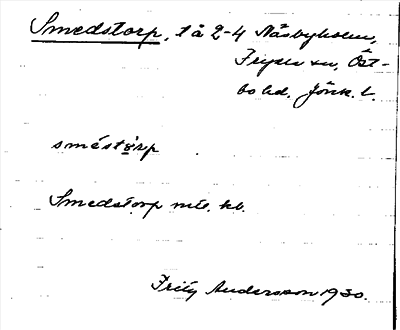 Smedstorp, tå 2-4 Näsbyholm,
Fryele sn, Öst-
bo hd. Jönk. l.
sméstòrp
Smedstorp mtl. kb.
Fritz Andersson 1930.